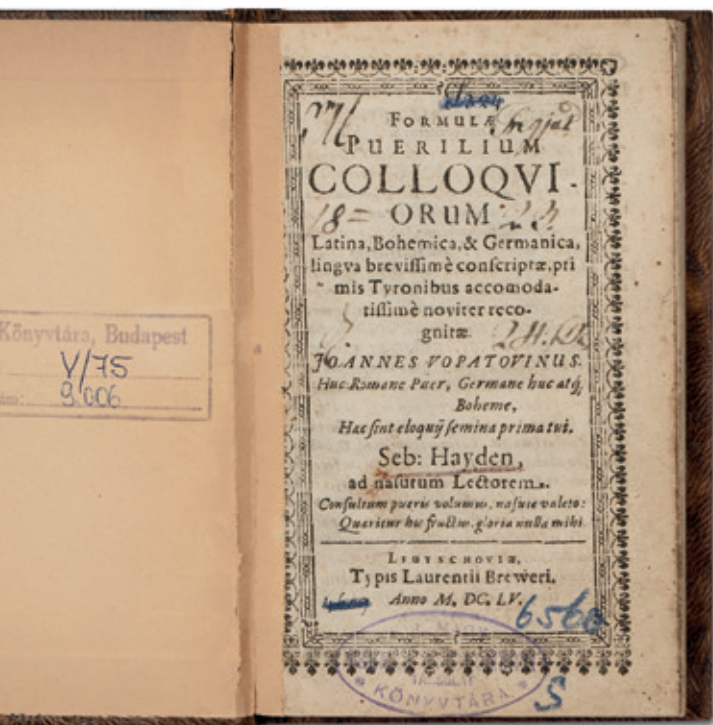 Könyvtára, Budapest
V/75
9.006
276
FORMULÆ
PUERILIUM
COLLOQVI-
ORUM
18=
Latina, Bohemica, & Germanica,
lingva breviſſimè conſcriptæ, pri
mis Tyronibus accomoda-
tiſſimè noviter reco-
gnitæ
JOANNES VOPATOVINUS.
Huc Romane Puer, Germane huc atq́,
Boheme,
Hæc ſint eloquij ſemina prima tui.
Seb: Hayden,
ad naſutum Lectorem.
Conſultum pueris volumus, naſute valeto:
Quæritur hic fructus, gloria nulla mihi
LEUTSCHOVIÆ,
Typis Laurentii Breweri.
Anno M. DC. LV.
6560
KÖNYVTÁRA
S